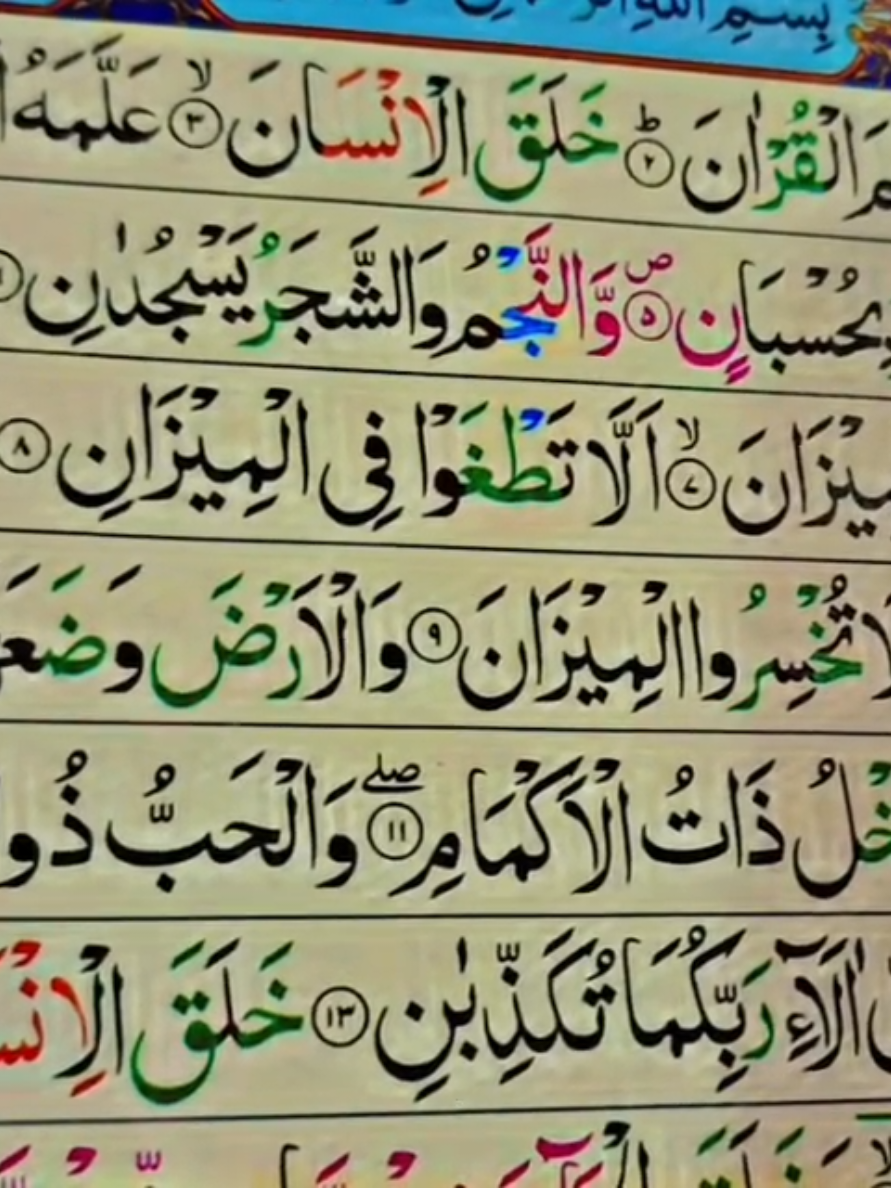 بِسْمِ اللّٰهِ
الْقُرْاٰنَ ؕ﴿۲﴾ خَلَقَ الْاِنْسَانَ ۙ﴿۳﴾ عَلَّمَهُ
بِحُسْبَانٍ ۪﴿۵﴾ وَّالنَّجْمُ وَالشَّجَرُ يَسْجُدٰنِ
اَلَّا تَطْغَوْا فِى الْمِيْزَانِ ﴿۸﴾
تُخْسِرُوا الْمِيْزَانَ ﴿۹﴾ وَالْاَرْضَ
ذَاتُ الْاَكْمَامِ ۖ﴿۱۱﴾ وَالْحَبُّ ذُو
اٰلَآءِ رَبِّكُمَا تُكَذِّبٰنِ ﴿۱۳﴾ خَلَقَ